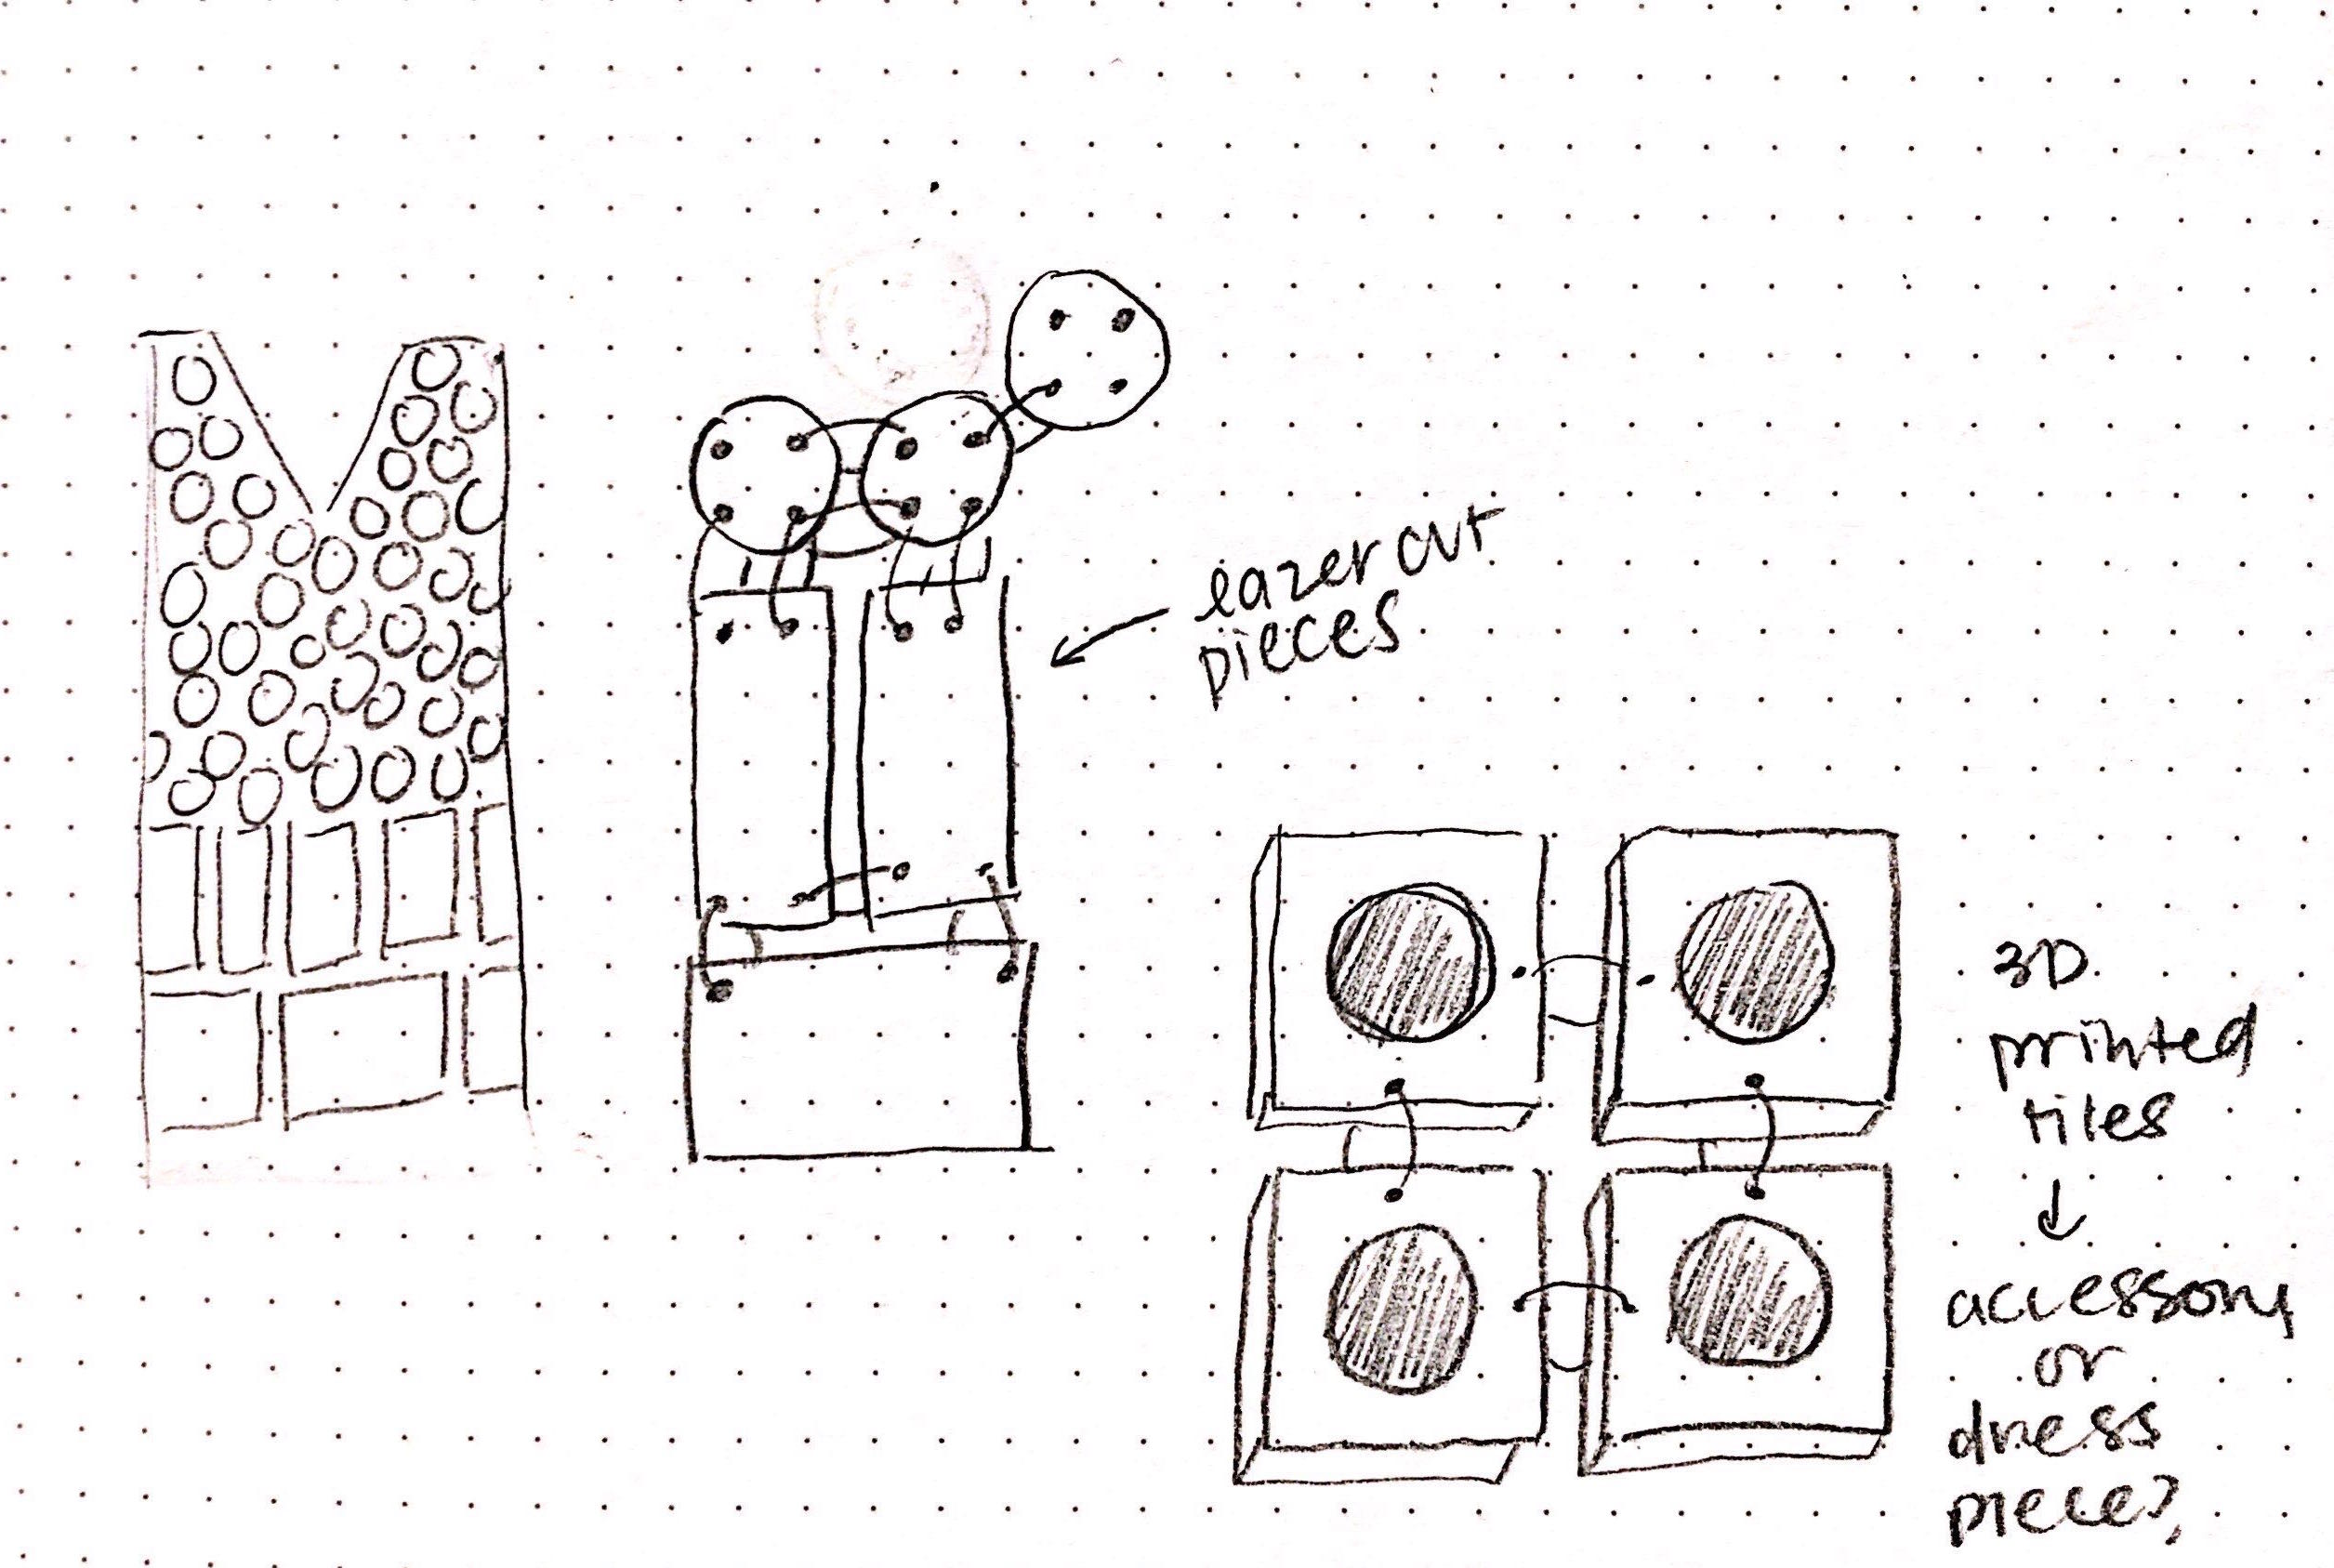 lazer cut
pieces
3D
printed
tiles
accessory
or
dress
piece?